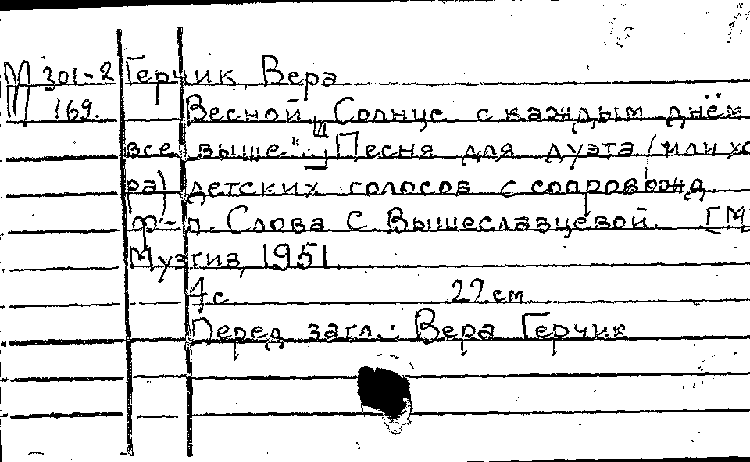 М 301-2 Герчик, Вера
169. Весной. „Солнце с каждым днём
все выше". Песня для дуэта (или хо
ра) детских голосов с сопровожд.
ф-п. Слова С. Вышеславцевой. [М
Музгиз, 1951.
4 с 22 см
Перед загл.: Вера Герчик